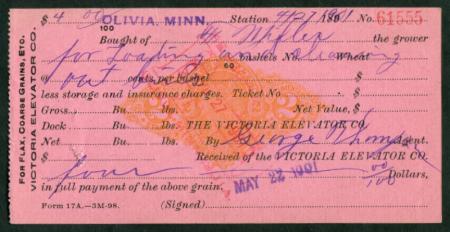 $ 4 00/100 OLIVIA, MINN. Station 4/27 1901 No. 61555
Bought of the grower
for Loafing and Cleaning bushels No. Wheat
of out cents, per bushel $
less storage and insurance charges. Ticket No. $
Gross, Bu. lbs. Net Value, $
Dock Bu. lbs. THE VICTORIA ELEVATOR CO.
Net Bu. lbs. By George Thomas Agent.
$ Received of the VICTORIA ELEVATOR CO.
four 00/100 Dollars,
MAY 22 1901
in full payment of the above grain.
Form 17A.—3M-98. (Signed)
FOR FLAX, COARSE GRAINS, ETC.
VICTORIA ELEVATOR CO.